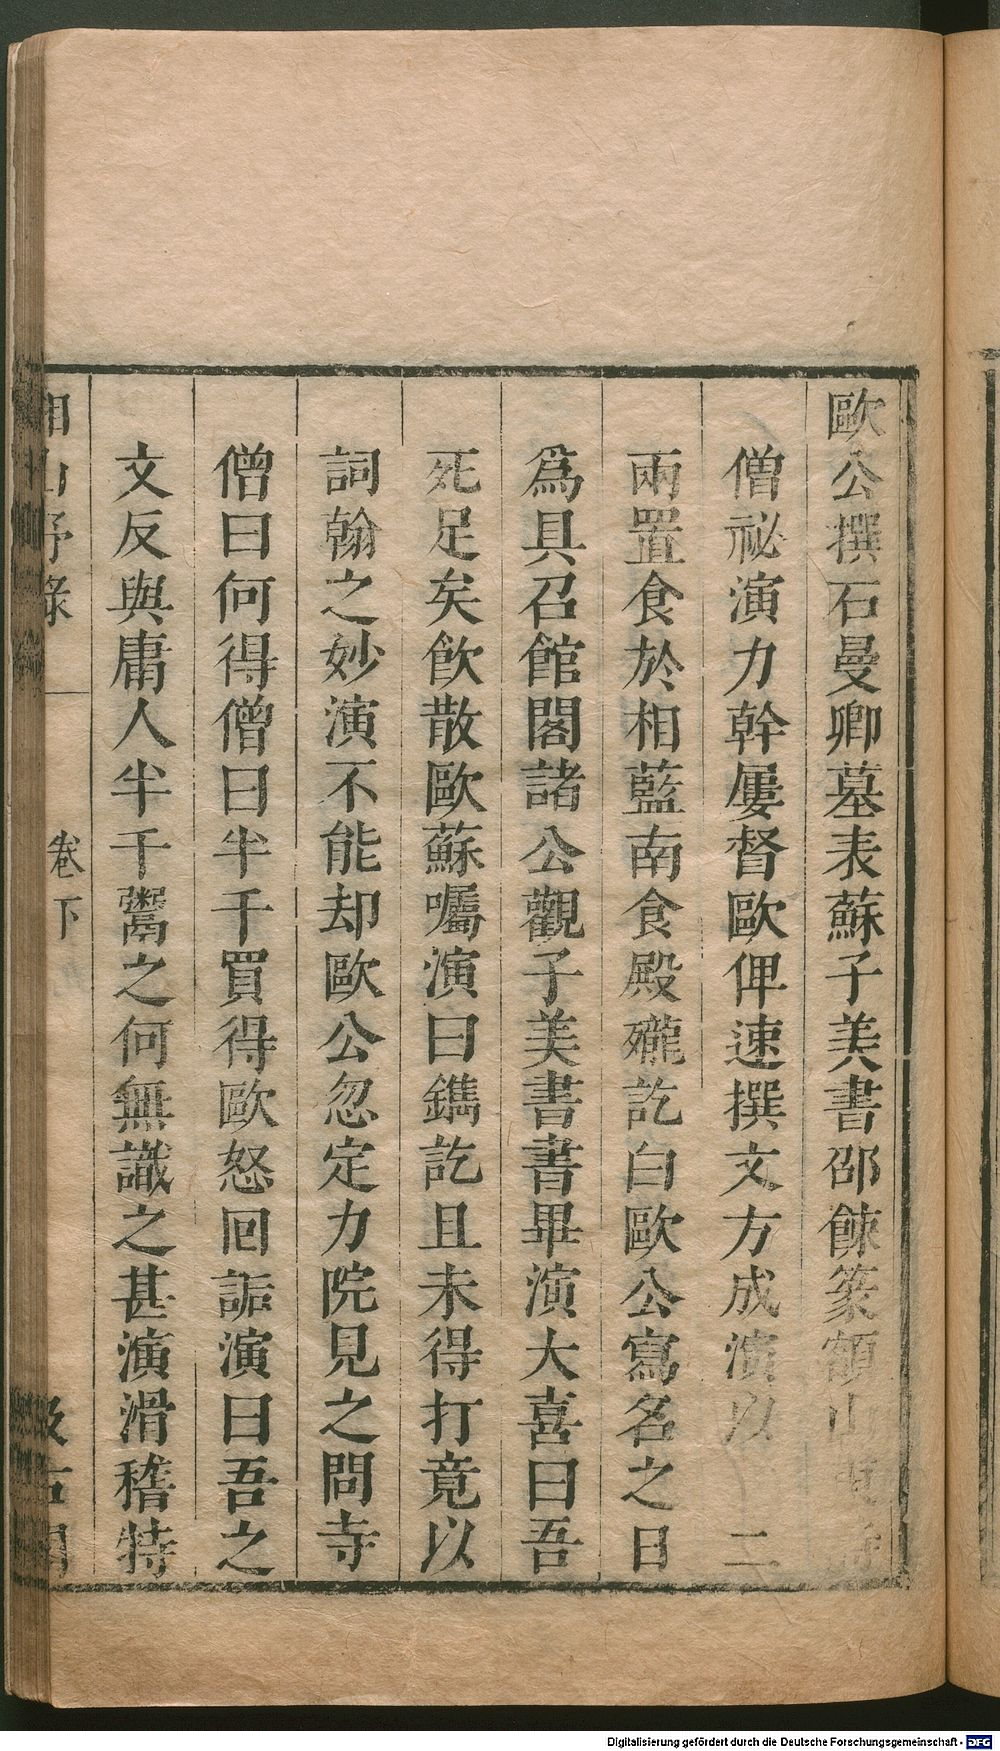 歐公撰石曼卿墓表蘇子美書邵餗篆額山
僧祕演力幹屢督歐俾速撰文方成演以 二
兩置食於相藍南食殿礲訖白歐公寫名之日
爲具召館閣諸公觀子美書書畢演大喜曰吾
死足矣飮散歐蘇囑演曰鐫訖且未得打竟以
詞翰之妙演不能却歐公忽定力院見之問寺
僧曰何得僧曰半千買得歐怒囘詬演曰吾之
文反與庸人半千鬻之何無識之甚演滑稽特
山野錄 卷下
Digitalisierung gefördert durch die Deutsche Forschungsgemeinschaft - DFG